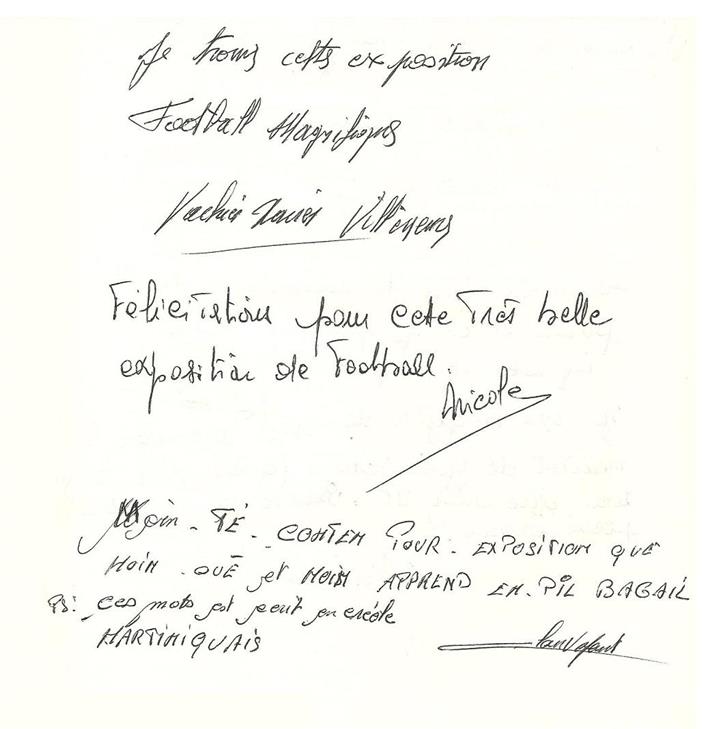 Je trouve cette exposition
Football Magnifique
Vachier Xavier Villeneuve
Félicitations pour cete très belle
exposition de Football.
Nicole
Moin - TÉ - CONTEN POUR - EXPOSITION QUE
MOIN - OUÉ et MOIN APPREND EN - PIL BAGAIL
PS: ces mots est écrit en créole
MARTINIQUAIS